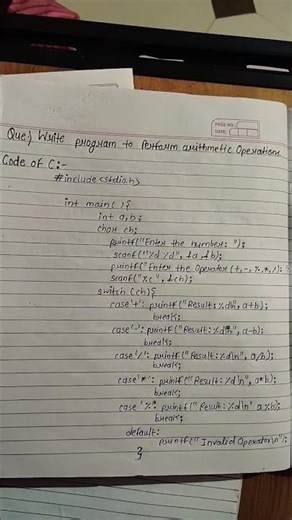 PAGE NO.
DATE:
Que.) Write program to Perform arithmetic Operations
Code of C:-
#include<stdio.h>
int main( ){
int a,b;
char ch;
printf("Enter the number: ");
scanf("%d %d", &a,&b);
printf("Enter the Operator (+,-,%,*,/):
scanf("%c", &ch);
switch (ch){
case '+': printf("Result:%d\n", a+b);
break;
case '-': printf("Result:%d\n", a-b);
break;
case '/': printf("Result:%d\n", a/b);
break;
case '*': printf("Result:%d\n", a*b);
break;
case '%': printf("Result:%d\n" a%b);
break;
default:
printf("Invalid Operator\n");
}